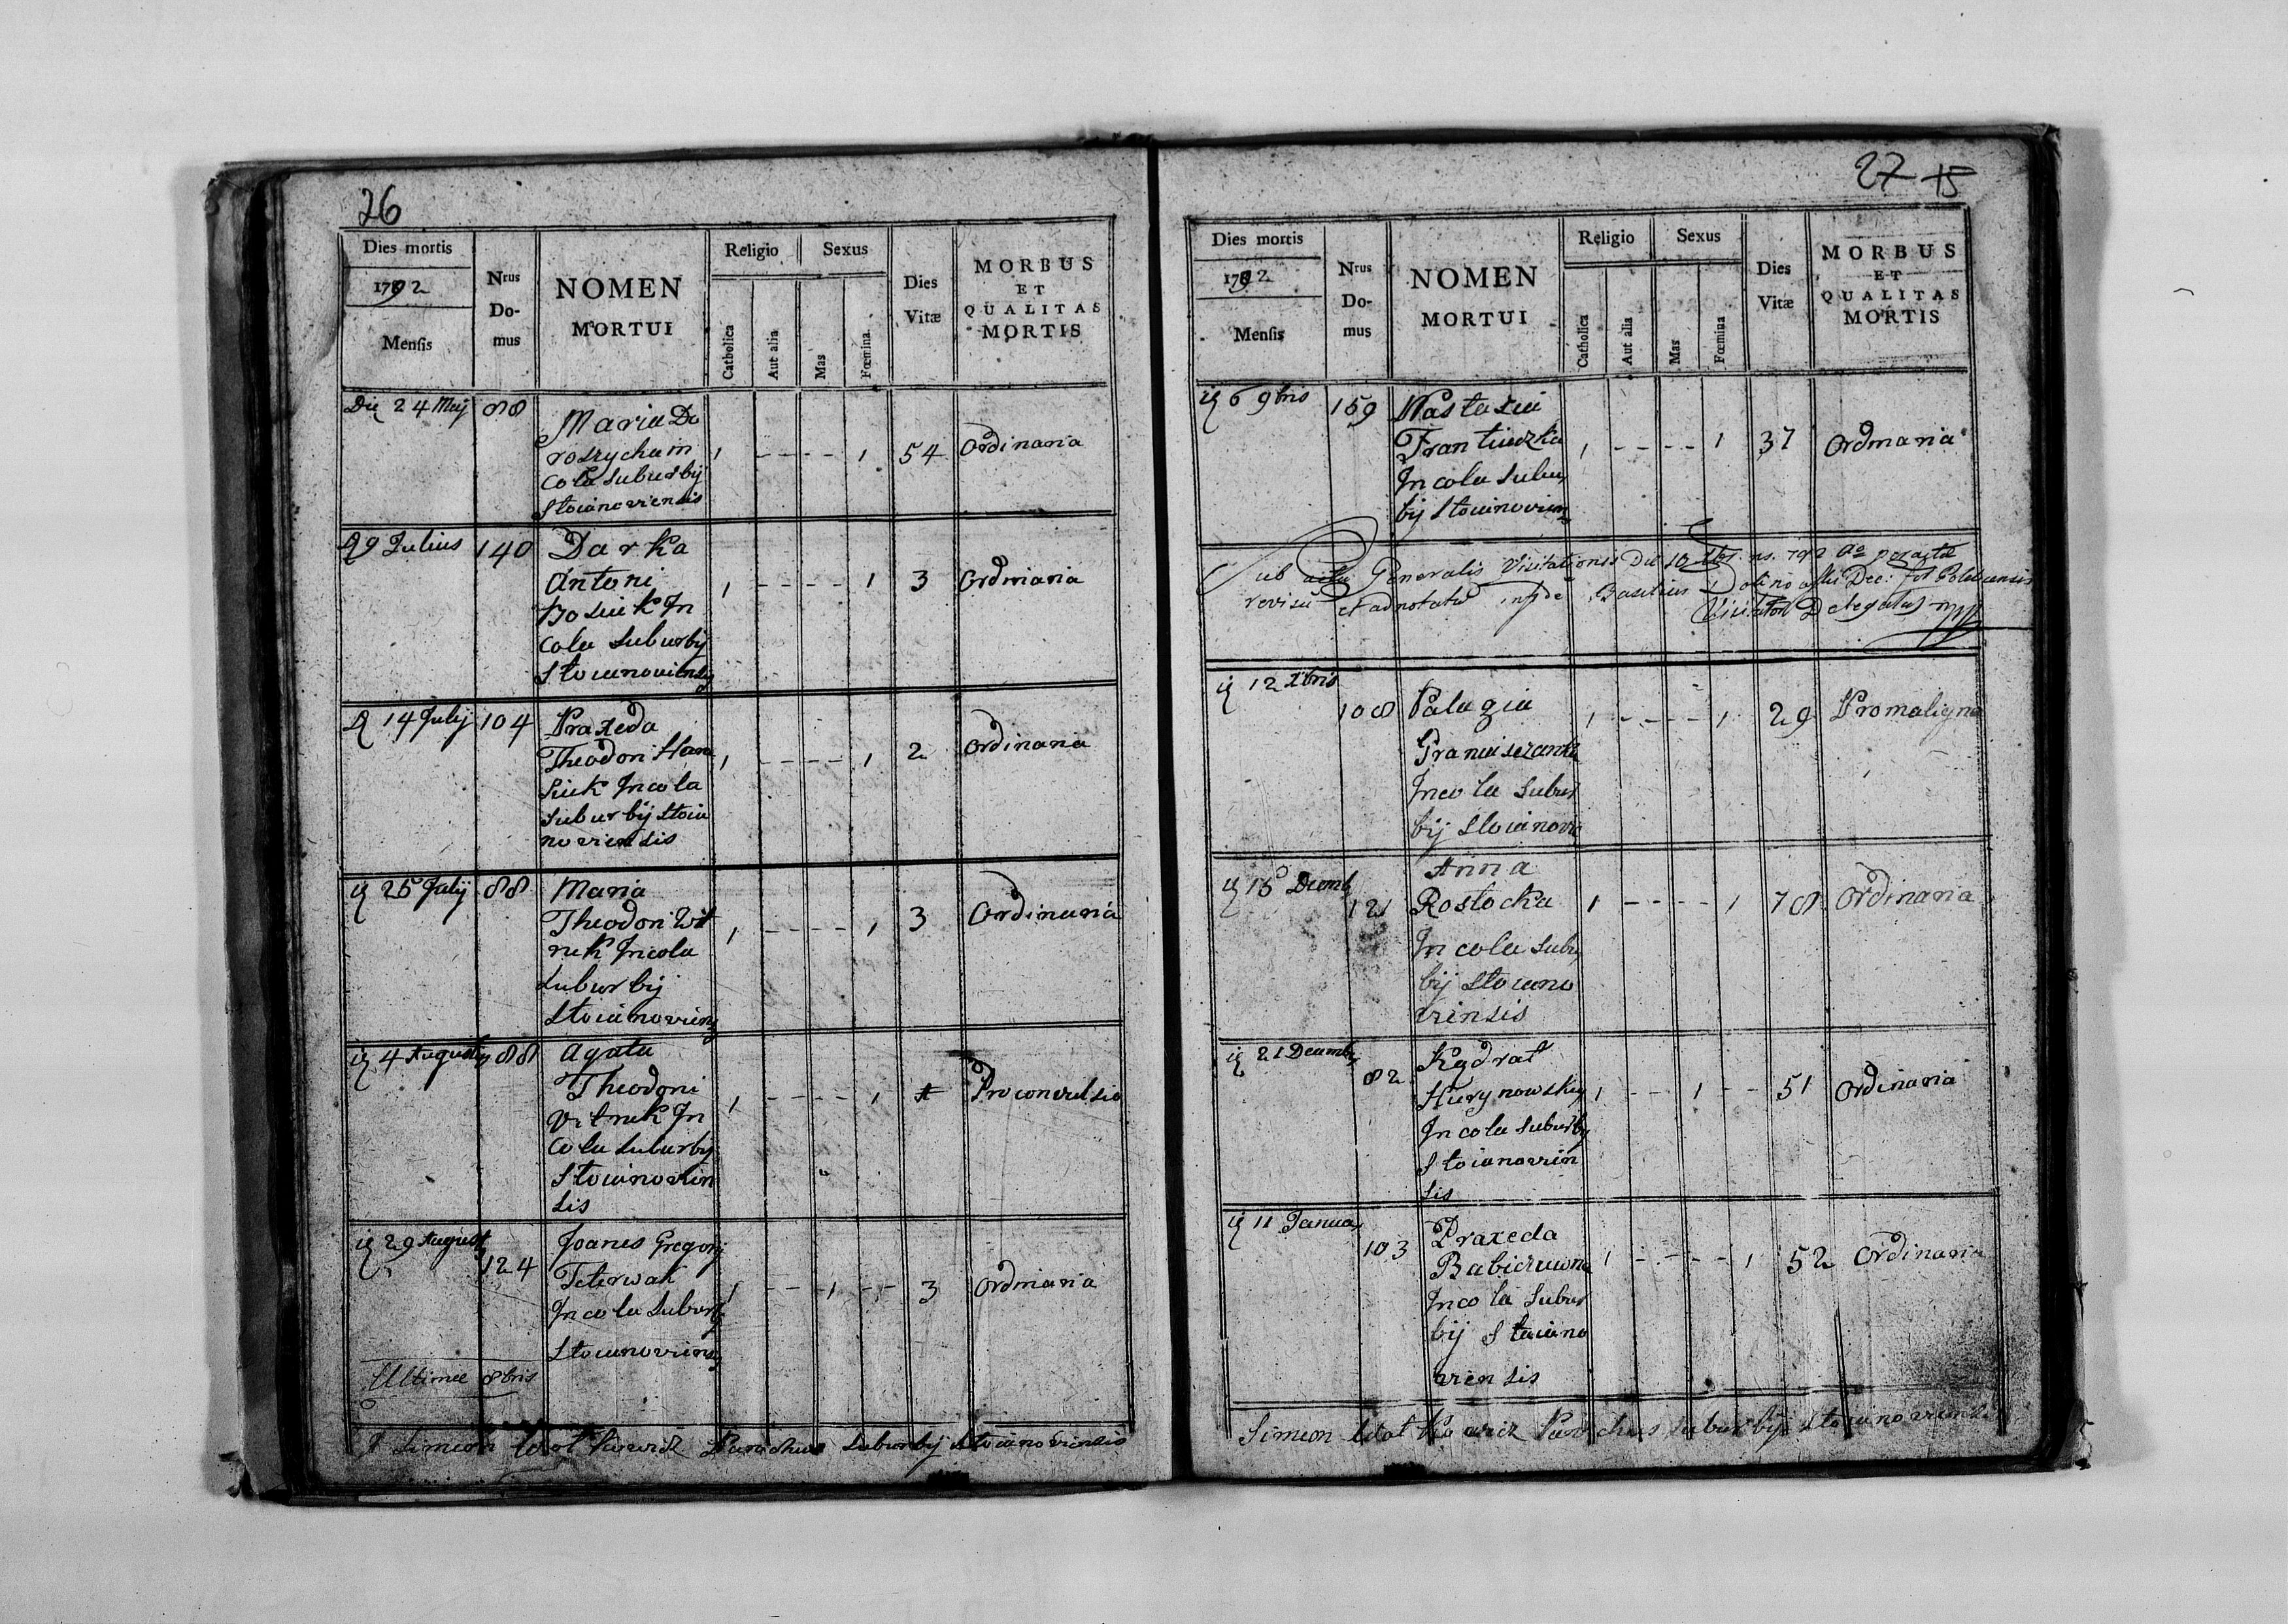 26
Dies mortis
1792
Mensis
Nrus Do-mus
NOMEN
MORTUI
Religio
Catholica
Aut alia
Sexus
Mas
Fœmina
Dies
Vitæ
MORBUS
ET
QUALITAS
MORTIS
Die 24 Maij 88
Maria Do
roszycha in
cola suburbij
Stoianoviensis
1 - - - - 1 54 Ordinaria
9 Julius 140
Darka
Antoni
Bosiuk In
cola suburbij
Stoianoviensis
1 - - - - 1 3 Ordinaria
14 Julij 104
Praxeda
Theodori Hara
siuk Incola
suburbij Stoia
noviensis
1 - - - - 1 2 Ordinaria
25 Julij 88
Maria
Theodori Wit
ruk Incola
suburbij
Stoianoviens
1 - - - - 1 3 Ordinaria
4 Augusti 88
Agata
Theodori
Vitruk In
cola suburbij
Stoianovien
sis
1 - - - - 1 Pro convulsio
29 August
124
Joanes Gregorij
Teterwak
Incola suburbij
Stoianoviens
1 - - 1 - - 3 Ordinaria
Ultimee 8bris
Simeon Parochus suburbij Stoianoviensis
27 15
Dies mortis
1792
Mensis
Nrus Do-mus
NOMEN
MORTUI
Religio
Catholica
Aut alia
Sexus
Mas
Fœmina
Dies
Vitæ
MORBUS
ET
QUALITAS
MORTIS
6 9bris 159
Nastasia
Frantiuzka
Incola subur
bij Stoianovien
1 - - - - 1 37 Ordinaria
Sub actu Generalis Visitationis Die 10 peractæ
revisu et adnotatu Basilius
Visitator Delegatus mpp
12 Xbris
108
Palagia
Graniuszanka
Incola subur
bij Stoianovi
1 - - - - 1 29 Pro maligna
15 Decemb
121
Anna
Rostocka
Incola subur
bij Stoiano
viensis
1 - - - - 1 78 Ordinaria
21 Decemb
82
Kydrat
Hurynowsky
Incola suburbij
Stoianovien
sis
1 - - 1 - - 51 Ordinaria
11 Janua
103
Praxeda
Babiczuwna
Incola subur
bij Stoiano
viensis
1 - - - - 1 52 Ordinaria
Simeon Parochus suburbij Stoianoviensis